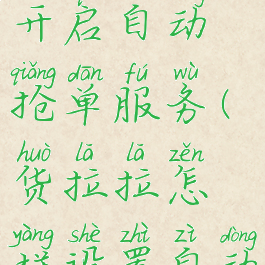 开启自动
qiǎng dān fú wù
抢单服务(
huò lā lā zěn
货拉拉怎
yàng shè zhì zì dòng
样设置自动